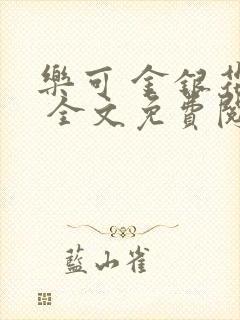 樂可 金銀花
全文免費閱
藍山雀